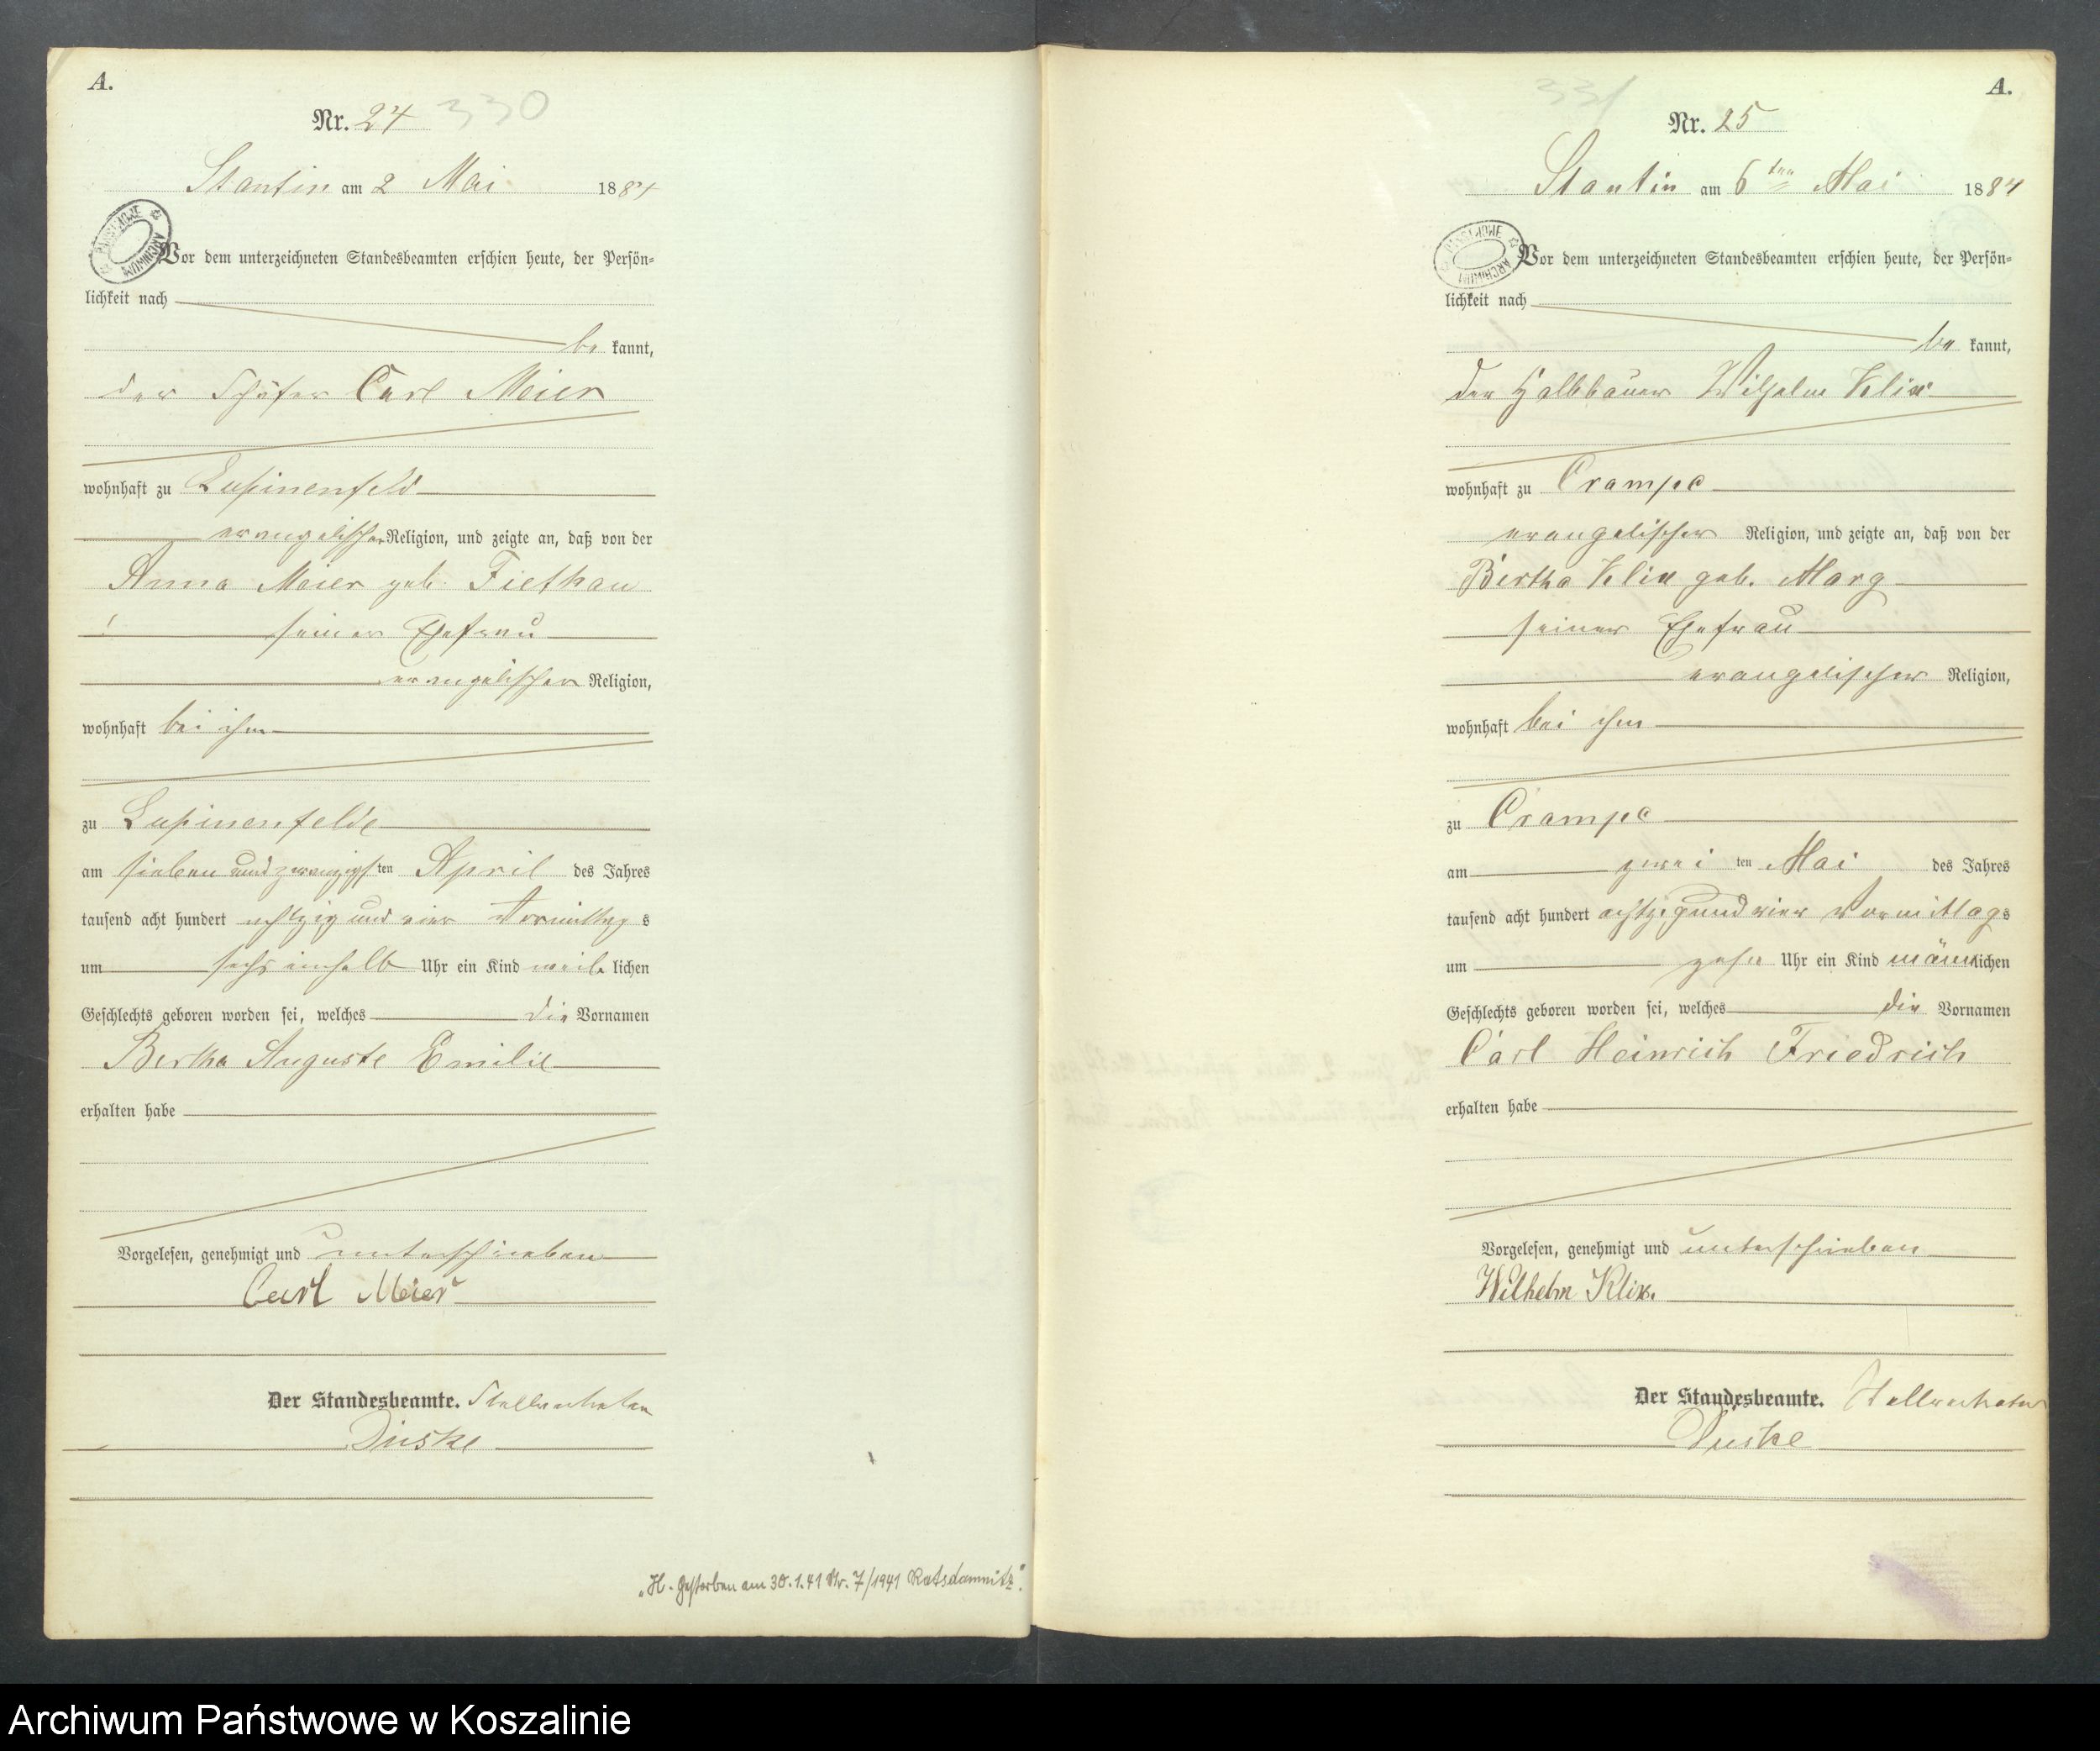 A.
Nr. 24 330
Stantin am 2 Mai 1884
Vor dem unterzeichneten Standesbeamten erschien heute, der Persön-
lichkeit nach
be kannt,
der Schäfer Carl Meier
wohnhaft zu Lupinenfeld
evangelischer Religion, und zeigte an, daß von der
Anna Meier geb. Fiethau
seiner Ehefrau
evangelischer Religion,
wohnhaft bei ihm
zu Lupinenfelde
am sieben und zwanzigsten April des Jahres
tausend acht hundert achtzig und vier Vormittags
um sechs einhalb Uhr ein Kind weiblichen
Geschlechts geboren worden sei, welches die Vornamen
Bertha Auguste Emilie
erhalten habe
Vorgelesen, genehmigt und unterschrieben
Carl Meier
Der Standesbeamte. Stellvertreter
"H. Gestorben am 30.1.41 Nr. 7/1941 Ratsdamnitz".
PAŃSTWOWE ARCHIWUM
A.
331
Nr. 25
Stantin am 6ten Mai 1884
PAŃSTWOWE ARCHIWUM
Vor dem unterzeichneten Standesbeamten erschien heute, der Persön-
lichkeit nach
be kannt,
der Halbbauer Wilhelm Klix
wohnhaft zu Crampe
evangelischer Religion, und zeigte an, daß von der
Bertha Klix geb. Marg
seiner Ehefrau
evangelischer Religion,
wohnhaft bei ihm
zu Crampe
am zwei ten Mai des Jahres
tausend acht hundert achtzig und vier Vormittags
um zehn Uhr ein Kind männlichen
Geschlechts geboren worden sei, welches die Vornamen
Carl Heinrich Friedrich
erhalten habe
Vorgelesen, genehmigt und unterschrieben
Wilhelm Klix.
Der Standesbeamte. Stellvertreter
Archiwum Państwowe w Koszalinie